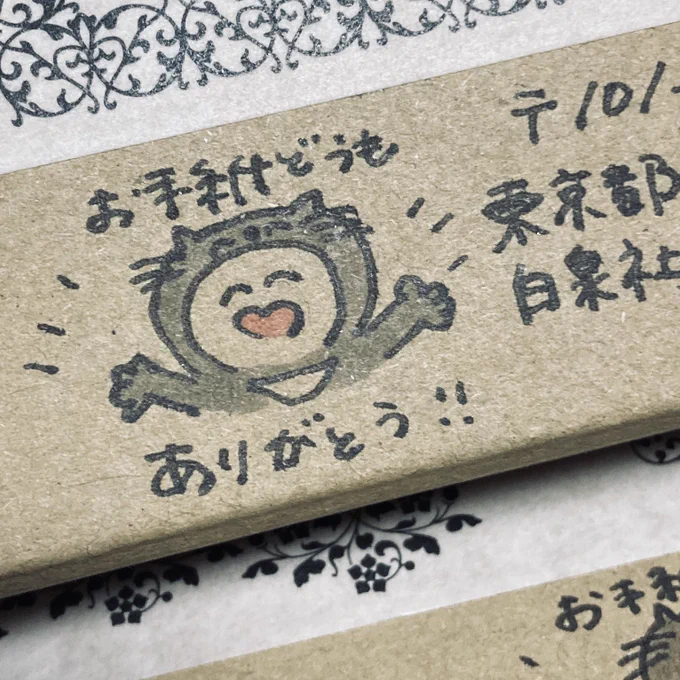 お手紙どうも
ありがとう!!
〒101-
東京都
白泉社
お手紙